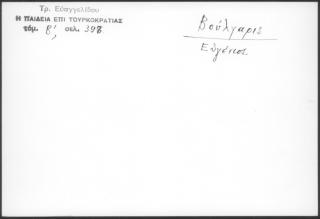 Τρ. Εὐαγγελίδου
Η ΠΑΙΔΕΙΑ ΕΠΙ ΤΟΥΡΚΟΚΡΑΤΙΑΣ
τόμ. β', σελ. 398
Βούλγαρις
Εὐγένιος